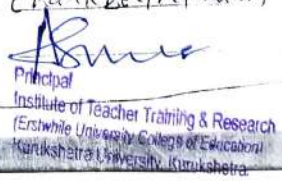 Principal
Institute of Teacher Training & Research
(Erstwhile University College of Education)
Kurukshetra University, Kurukshetra